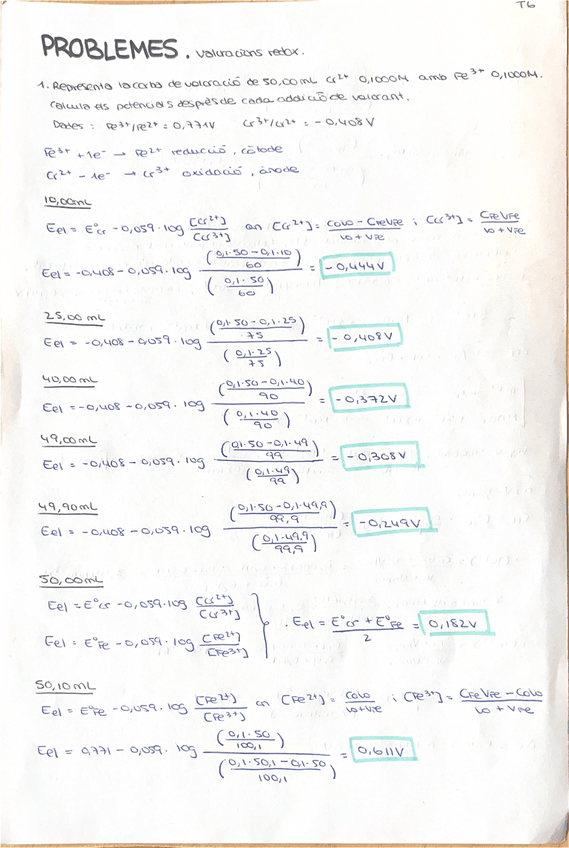 T6
PROBLEMES. valoracions redox.
1. Representa la corba de valoració de 50,00 mL Cr²⁺ 0,1000M amb Fe³⁺ 0,1000M.
Calcula els potencials després de cada addició de valorant.
Dades: Fe³⁺/Fe²⁺ = 0,771V Cr³⁺/Cr²⁺ = -0,408 V
Fe³⁺ + 1e⁻ → Fe²⁺ reducció, càtode
Cr²⁺ - 1e⁻ → Cr³⁺ oxidació, ànode
10,00mL
Eel = E°cr - 0,059·log [Cr²⁺]/[Cr³⁺] on [Cr²⁺] = (CoVo - CFeVFe)/(Vo + VFe) i [Cr³⁺] = CFeVFe/(Vo + VFe)
Eel = -0,408 - 0,059·log ((0,1·50 - 0,1·10)/60)/((0,1·50)/60) = -0,444V
25,00 mL
Eel = -0,408 - 0,059·log ((0,1·50 - 0,1·25)/75)/((0,1·25)/75) = -0,408V
40,00 mL
Eel = -0,408 - 0,059·log ((0,1·50 - 0,1·40)/90)/((0,1·40)/90) = -0,372V
49,00 mL
Eel = -0,408 - 0,059·log ((0,1·50 - 0,1·49)/99)/((0,1·49)/99) = -0,308V
49,90mL
Eel = -0,408 - 0,059·log ((0,1·50 - 0,1·49,9)/99,9)/((0,1·49,9)/99,9) = -0,249V
50,00mL
Eel = E°cr - 0,059·log [Cr²⁺]/[Cr³⁺]
Eel = E°Fe - 0,059·log [Fe²⁺]/[Fe³⁺]
. Eel = (E°cr + E°Fe)/2 = 0,182V
50,10mL
Eel = E°Fe - 0,059·log [Fe²⁺]/[Fe³⁺] on [Fe²⁺] = CoVo/(Vo+VFe) i [Fe³⁺] = (CFeVFe - CoVo)/(Vo + VFe)
Eel = 0,771 - 0,059·log ((0,1·50)/100,1)/((0,1·50,1 - 0,1·50)/100,1) = 0,611V